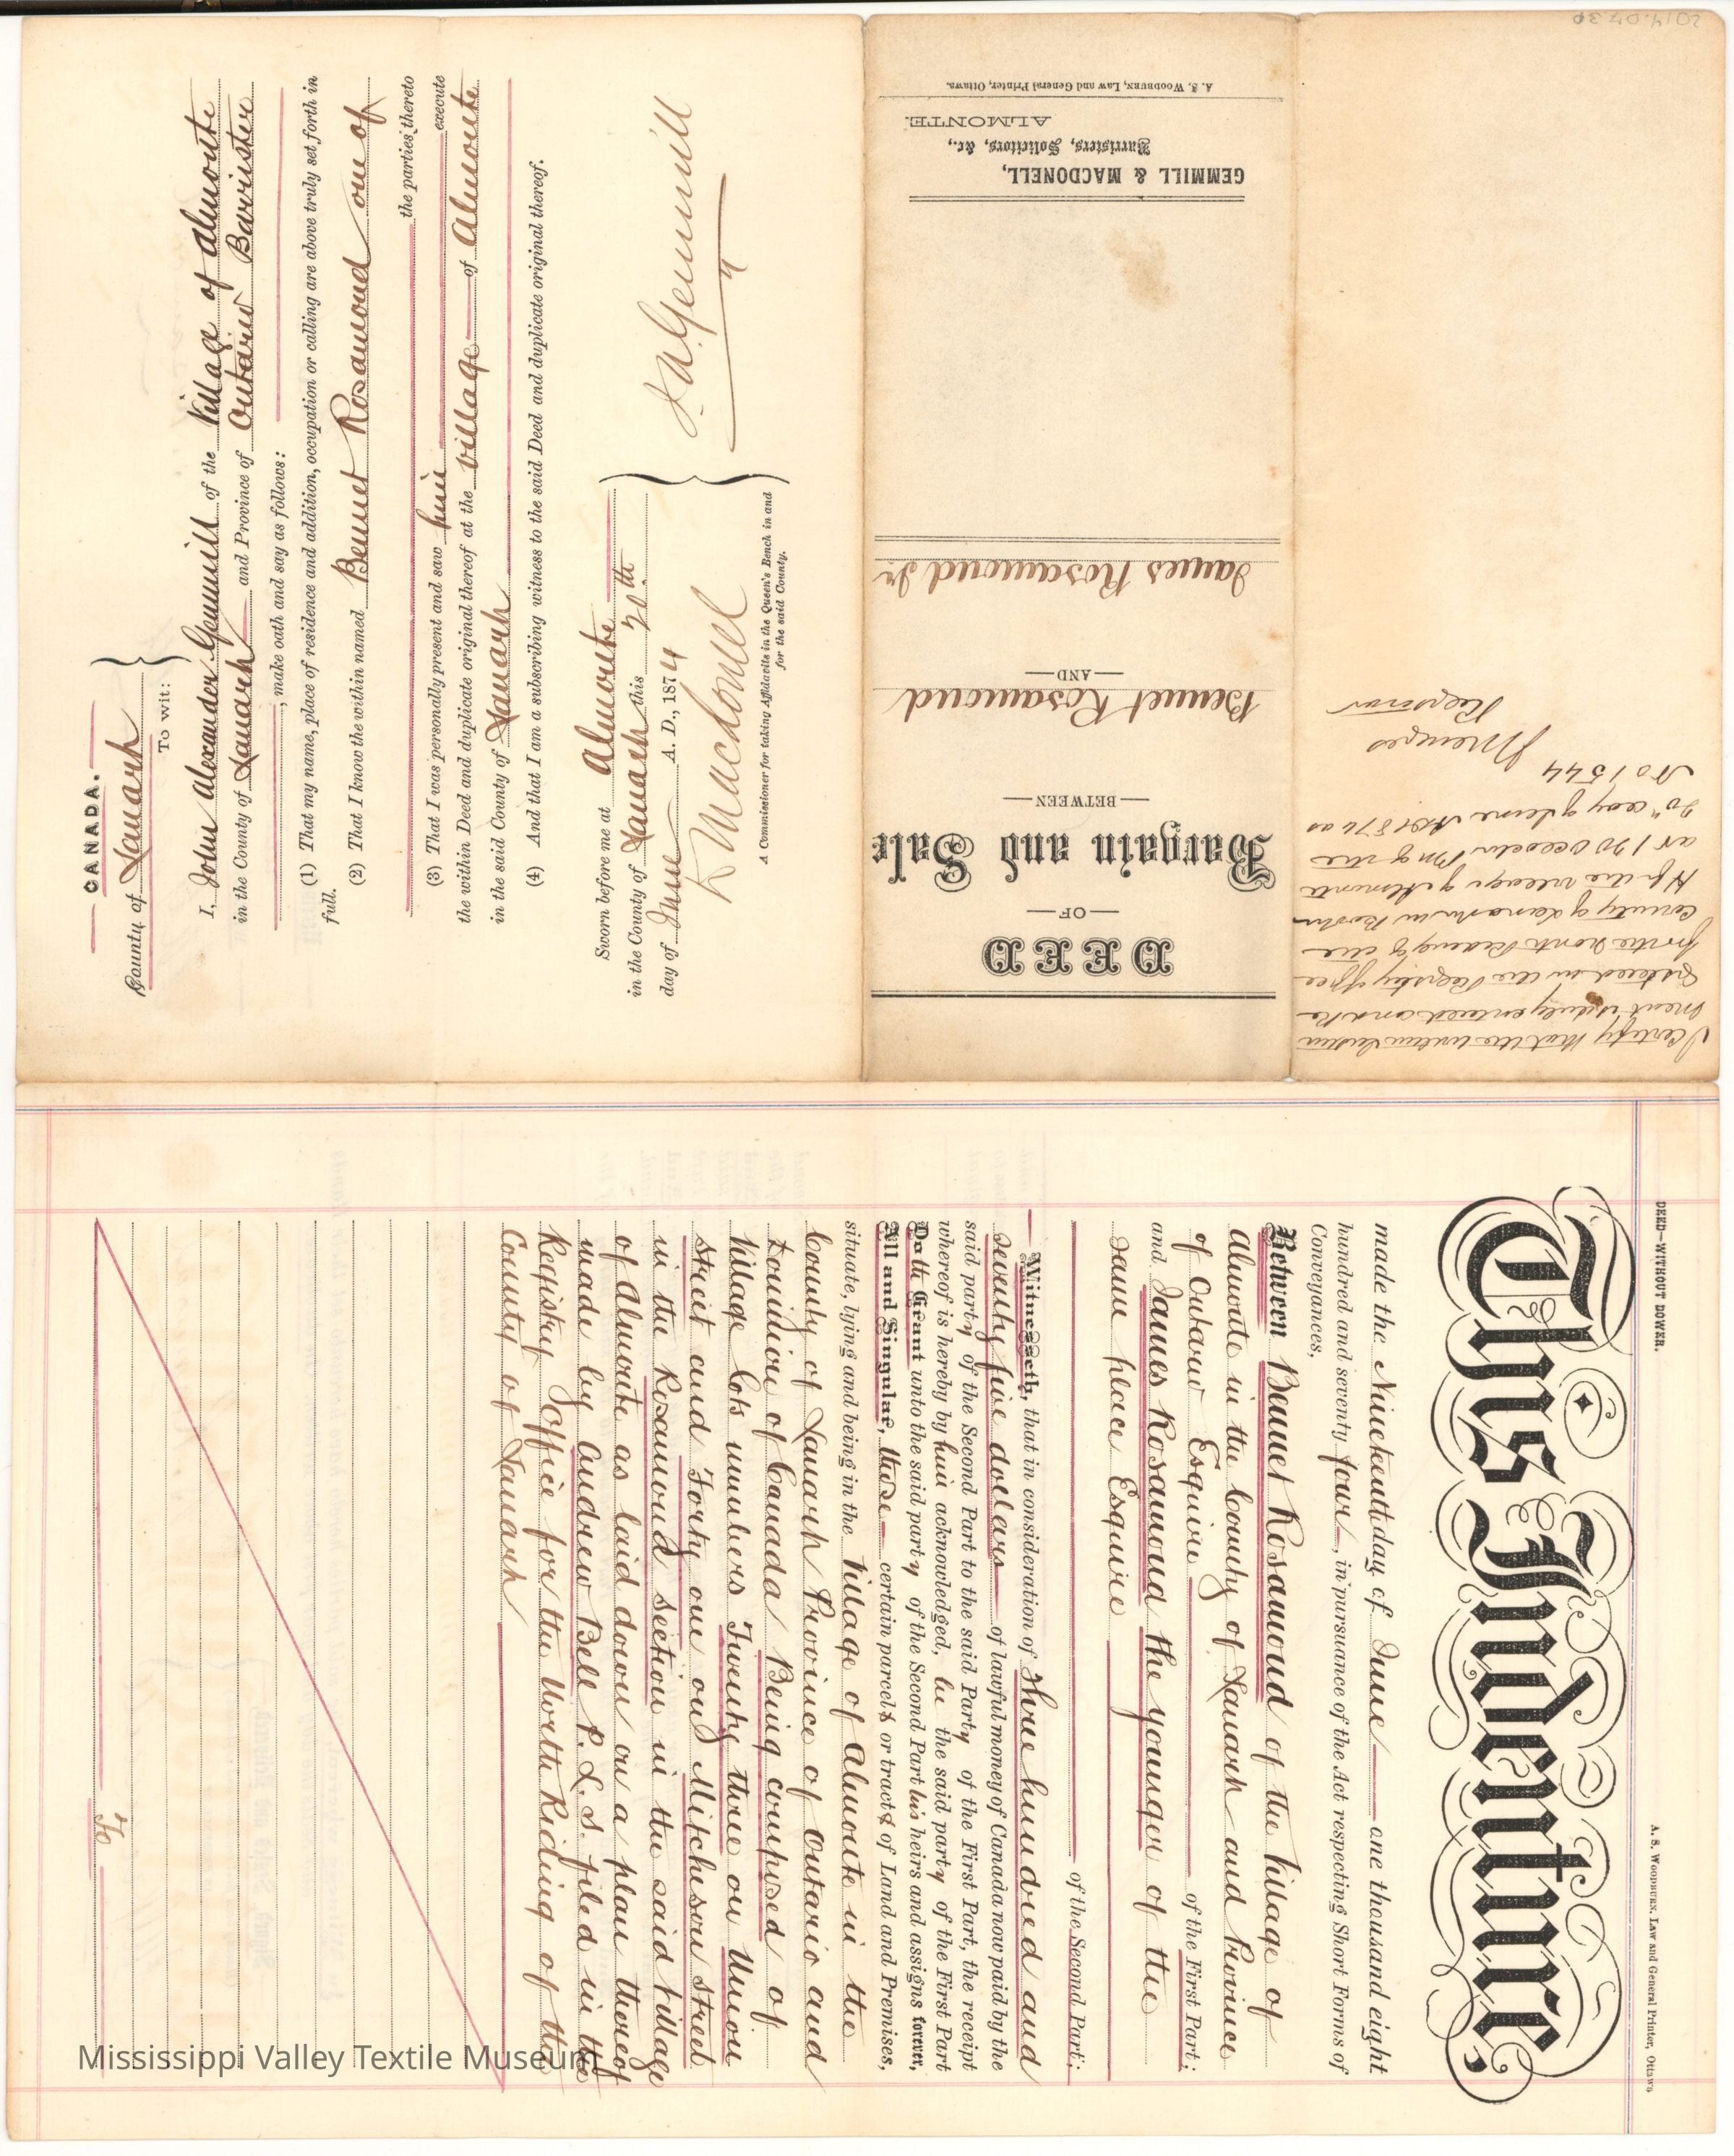 DEED—WITHOUT DOWER.
A. S. WOODBURN, Law and General Printer, Ottawa
This Indenture,
made the Nineteenth day of June one thousand eight
hundred and seventy four, in pursuance of the Act respecting Short Forms of
Conveyances,
Between Bennet Rosamond of the Village of
Almonte in the County of Lanark and Province
of Ontario Esquire of the First Part;
and James Rosamond the younger of the
same place Esquire
of the Second Part;
Witnesseth, that in consideration of Three hundred and
seventy five dollars of lawful money of Canada now paid by the
said party of the Second Part to the said Party of the First Part, the receipt
whereof is hereby by him acknowledged, he the said party of the First Part
Doth Grant unto the said party of the Second Part his heirs and assigns forever,
All and Singular, those certain parcels or tracts of Land and Premises,
situate, lying and being in the Village of Almonte in the
County of Lanark Province of Ontario and
Dominion of Canada Being composed of
Village lots numbers Twenty three on Union
street and Forty one on Mitcheson street
in the Rosamond section in the said Village
of Almonte as laid down on a plan thereof
made by Andrew Bell P. L. S. filed in the
Registry Office for the North Riding of the
County of Lanark
To
CANADA.
County of Lanark
To wit:
I, John Alexander Gemmill of the Village of Almonte
in the County of Lanark and Province of Ontario Barrister
, make oath and say as follows:
(1) That my name, place of residence and addition, occupation or calling are above truly set forth in
full.
(2) That I know the within named Bennet Rosamond one of
the parties thereto
(3) That I was personally present and saw him execute
the within Deed and duplicate original thereof at the village of Almonte
in the said County of Lanark
(4) And that I am a subscribing witness to the said Deed and duplicate original thereof.
Sworn before me at Almonte
in the County of Lanark this 20th
day of June A. D., 1874
J A Gemmill
D Macdonell
A Commissioner for taking Affidavits in the Queen's Bench in and
for the said County.
DEED
OF
Bargain and Sale
BETWEEN
Bennet Rosamond
AND
James Rosamond Jr
GEMMILL & MACDONELL,
Barristers, Solicitors, &c.,
ALMONTE.
A. S. WOODBURN, Law and General Printer, Ottawa.
I certify that the within Instru
ment is duly entered and Re
gistered in the Registry office
for the North Riding of the
County of Lanark in Book
H for the village of Almonte
at 1 20 oclock PM of the
20" day of June AD 1874 as
No 1544
Registrar
2014.07.30
Mississippi Valley Textile Museum